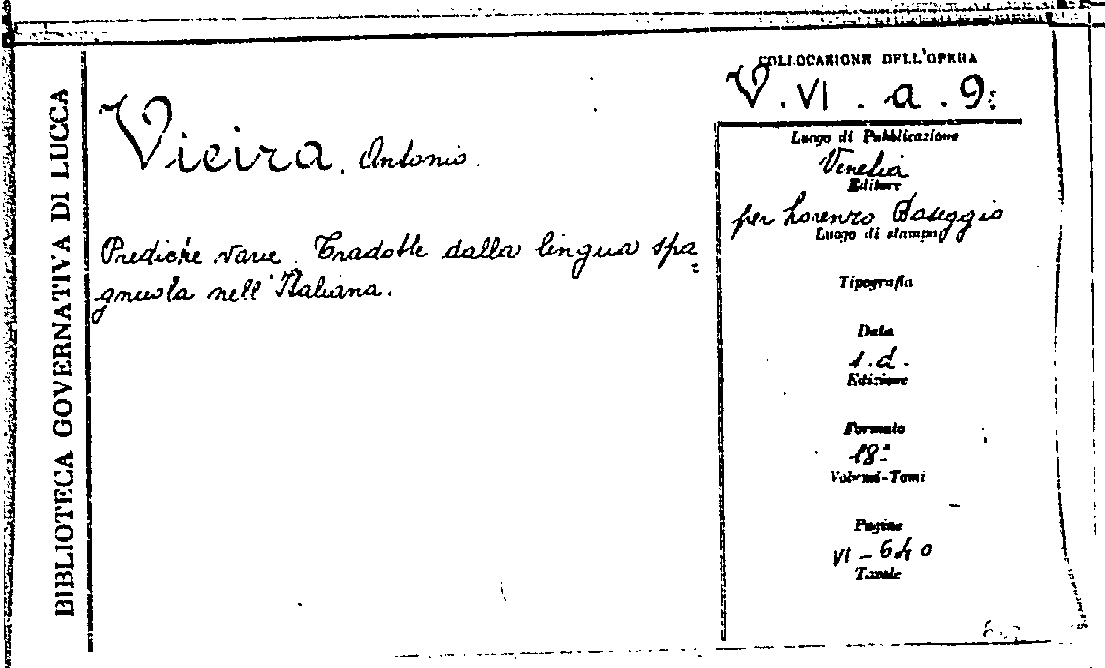 BIBLIOTECA GOVERNATIVA DI LUCCA
Vieira, Antonio.
Prediche varie. Tradotte dalla lingua spa=
gnuola nell'Italiana.
COLLOCAZIONE DELL'OPERA
V. VI. a. 9:
Luogo di Pubblicazione
Venezia
Editore
per Lorenzo Baseggio
Luogo di stampa
Tipografia
Data
s.d.
Edizione
Formato
18º
Volumi-Tomi
Pagine
VI-640
Tavole